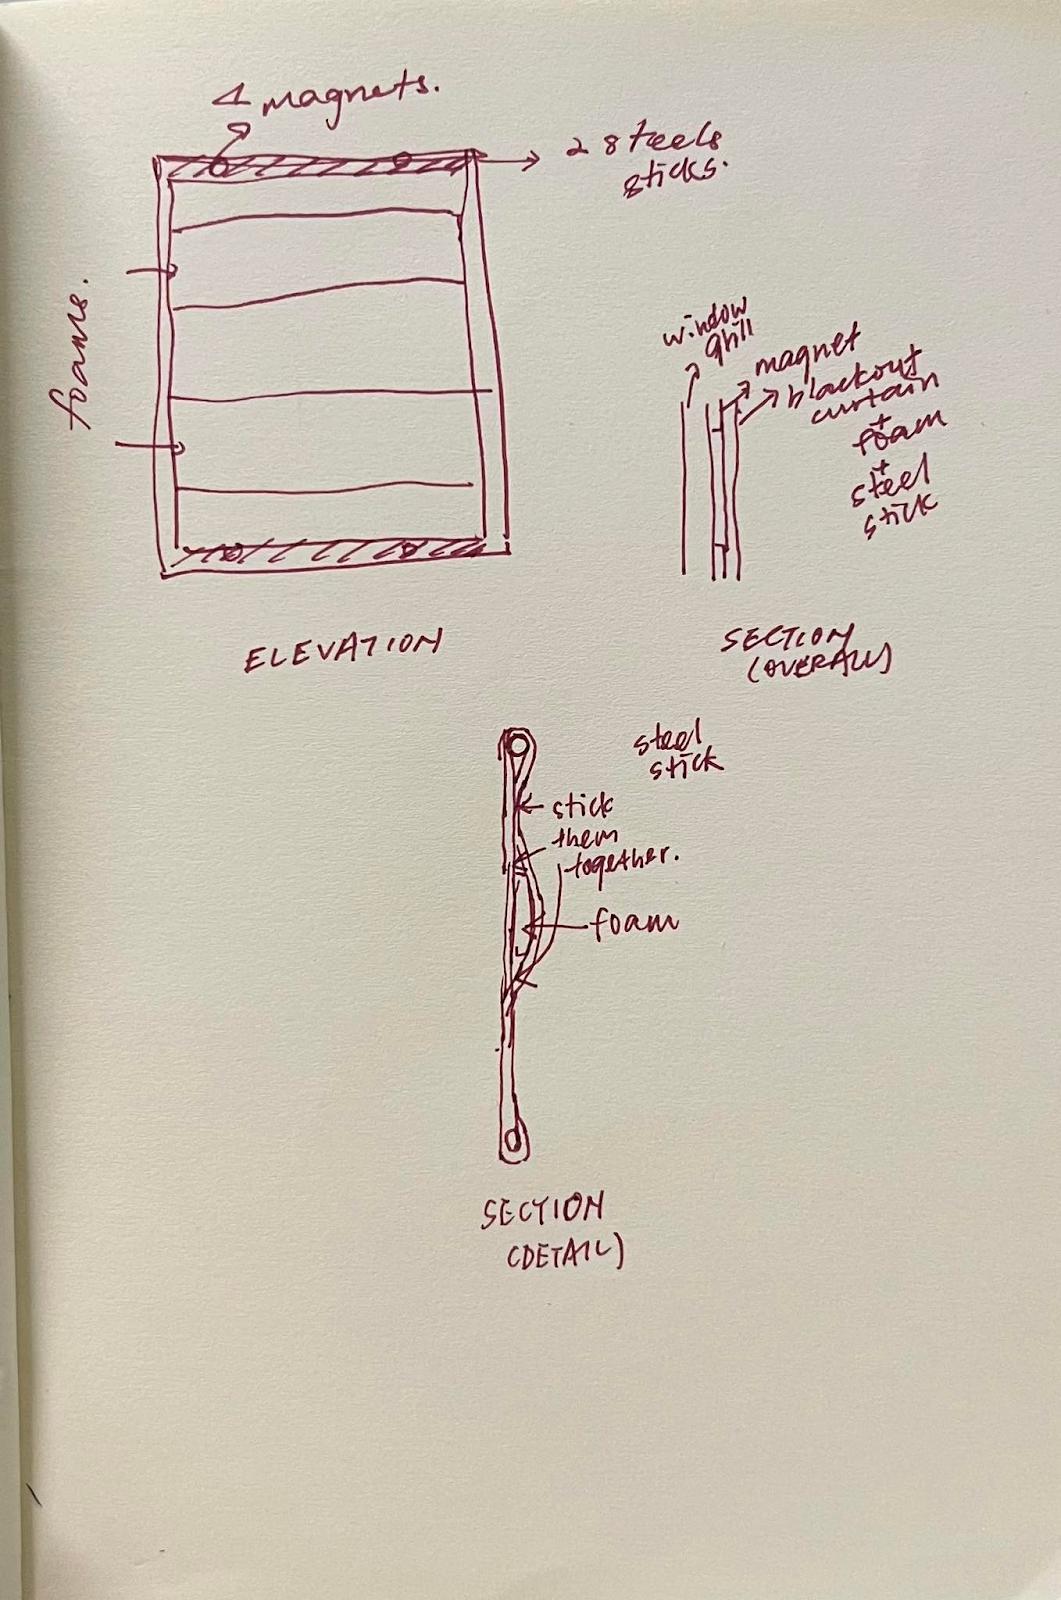 4 magnets.
2 steels
sticks.
foams.
window
grill
magnet
blackout
curtain
+
foam
+
steel
stick
ELEVATION
SECTION
(OVERALL)
steel
stick
stick
them
together.
foam
SECTION
(DETAIL)